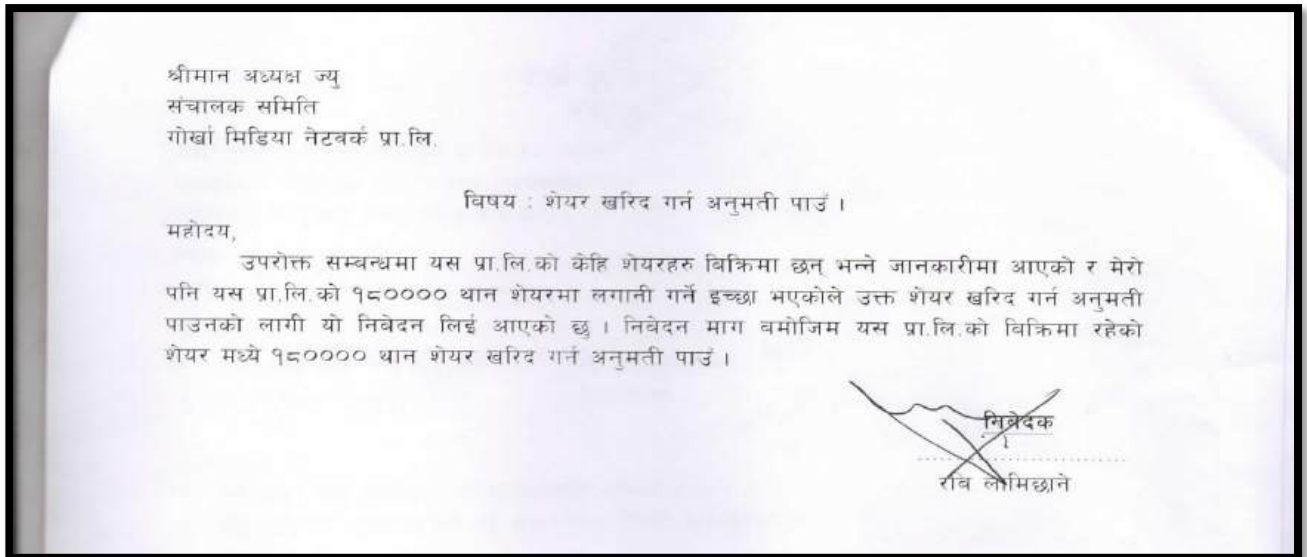 श्रीमान अध्यक्ष ज्यु
संचालक समिति
गोर्खा मिडिया नेटवर्क प्रा.लि.
विषय : शेयर खरिद गर्न अनुमती पाउँ ।
महोदय,
उपरोक्त सम्बन्धमा यस प्रा.लि.को केहि शेयरहरु बिक्रिमा छन् भन्ने जानकारीमा आएको र मेरो
पनि यस प्रा.लि.को १८०००० थान शेयरमा लगानी गर्ने इच्छा भएकोले उक्त शेयर खरिद गर्न अनुमती
पाउनको लागी यो निबेदन लिई आएको छु । निबेदन माग बमोजिम यस प्रा.लि.को विक्रिमा रहेको
शेयर मध्ये १८०००० थान शेयर खरिद गर्न अनुमती पाउँ ।
निबेदक
रबि लामिछाने